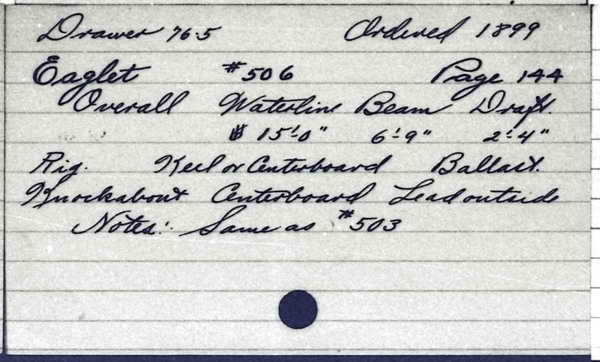 Drawer 76-5 Ordered 1899
Eaglet #506 Page 144
Overall Waterline Beam Draft.
15'-0" 6'-9" 2'-4"
Rig. Keel or Centerboard Ballast.
Knockabout Centerboard Lead outside
Notes: Same as #503